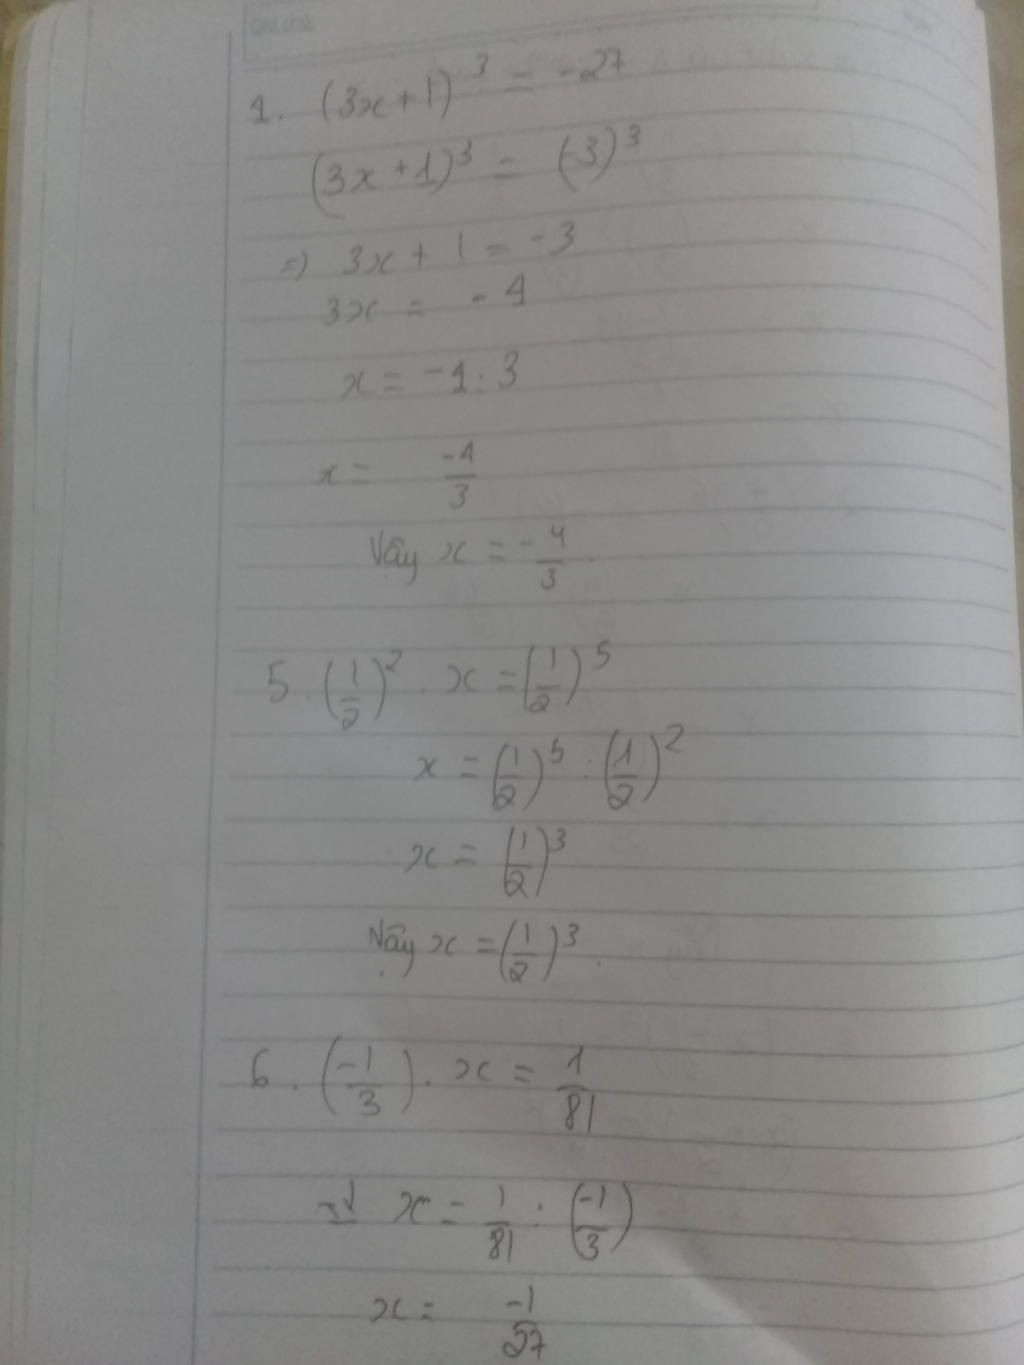 4. (3x+1)³ = -27
(3x+1)³ = (-3)³
=> 3x + 1 = -3
3x = -4
x = -4 : 3
x = -4/3
Vậy x = -4/3.
5. (1/2)² . x = (1/2)⁵
x = (1/2)⁵ : (1/2)²
x = (1/2)³
Vậy x = (1/2)³.
6. (-1/3) . x = 1/81
x = 1/81 : (-1/3)
x = -1/27